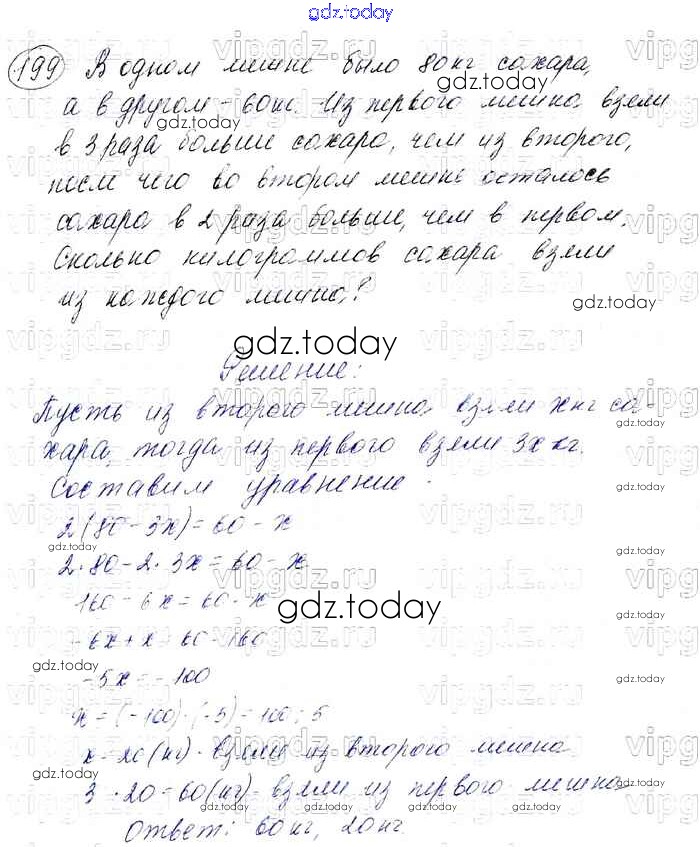 gdz.today
199 В одном мешке было 80 кг сахара,
а в другом - 60 кг. Из первого мешка взяли
в 3 раза больше сахара, чем из второго,
после чего во втором мешке осталось
сахара в 2 раза больше, чем в первом.
Сколько килограммов сахара взяли
из каждого мешка?
gdz.today
Решение:
Пусть из второго мешка взяли x кг са-
хара, тогда из первого взяли 3x кг.
Составим уравнение
2(80 - 3x) = 60 - x
2·80 - 2·3x = 60 - x
160 - 6x = 60 - x
gdz.today
-6x + x = 60 - 160
-5x = -100
x = (-100) : (-5) = 100 : 5
x = 20 (кг) - взяли из второго мешка
3 · 20 = 60 (кг) - взяли из первого мешка
Ответ: 60 кг, 20 кг.